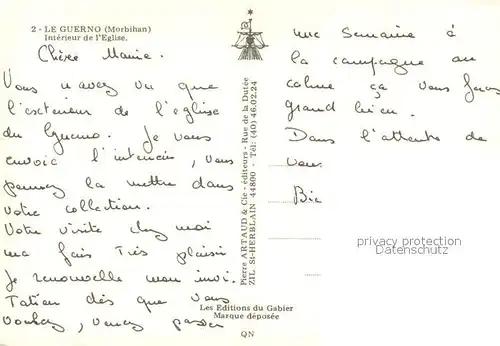 2 - LE GUERNO (Morbihan)
Intérieur de l'Eglise.
Chère Mamie.
Vous n'avez vu que
l'exterieur de l'eglise
du Guerno. Je vous
envoie l'interieur, vous
pourrez la mettre dans
votre collection.
Votre visite chez moi
ma fais très plaisir
Je renouvelle mon invi
Tation dès que vous
voulez, venez passer
une semaine à
la campagne au
calme ça vous feras
grand bien.
Dans l'attente de
vous
Pierre ARTAUD & Cie - éditeurs - Rue de la Dutée
ZIL St-HERBLAIN 44800 - Tél: (40) 46.02.24
Les Editions du Gabier
Marque déposée
QN
privacy protection
Datenschutz